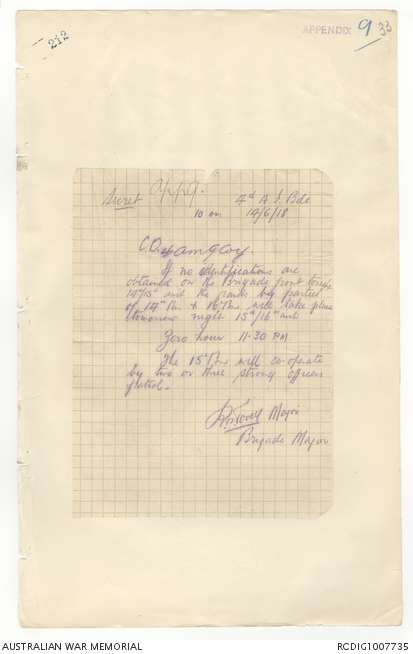 APPENDIX 9 33
212
Secret App 9.
4th A I Bde
10 am 14/6/18
C.O.
If no identifications are
obtained on the Brigade front tonight
14/15th inst the raids by parties
of 14th Bn & 16th Bn will take place
tomorrow night 15th/16th inst
Zero hour 11.30 PM
The 15th Bn will co-operate
by two or three strong officers
patrol.
Major
Brigade Major
AUSTRALIAN WAR MEMORIAL
RCDIG1007735